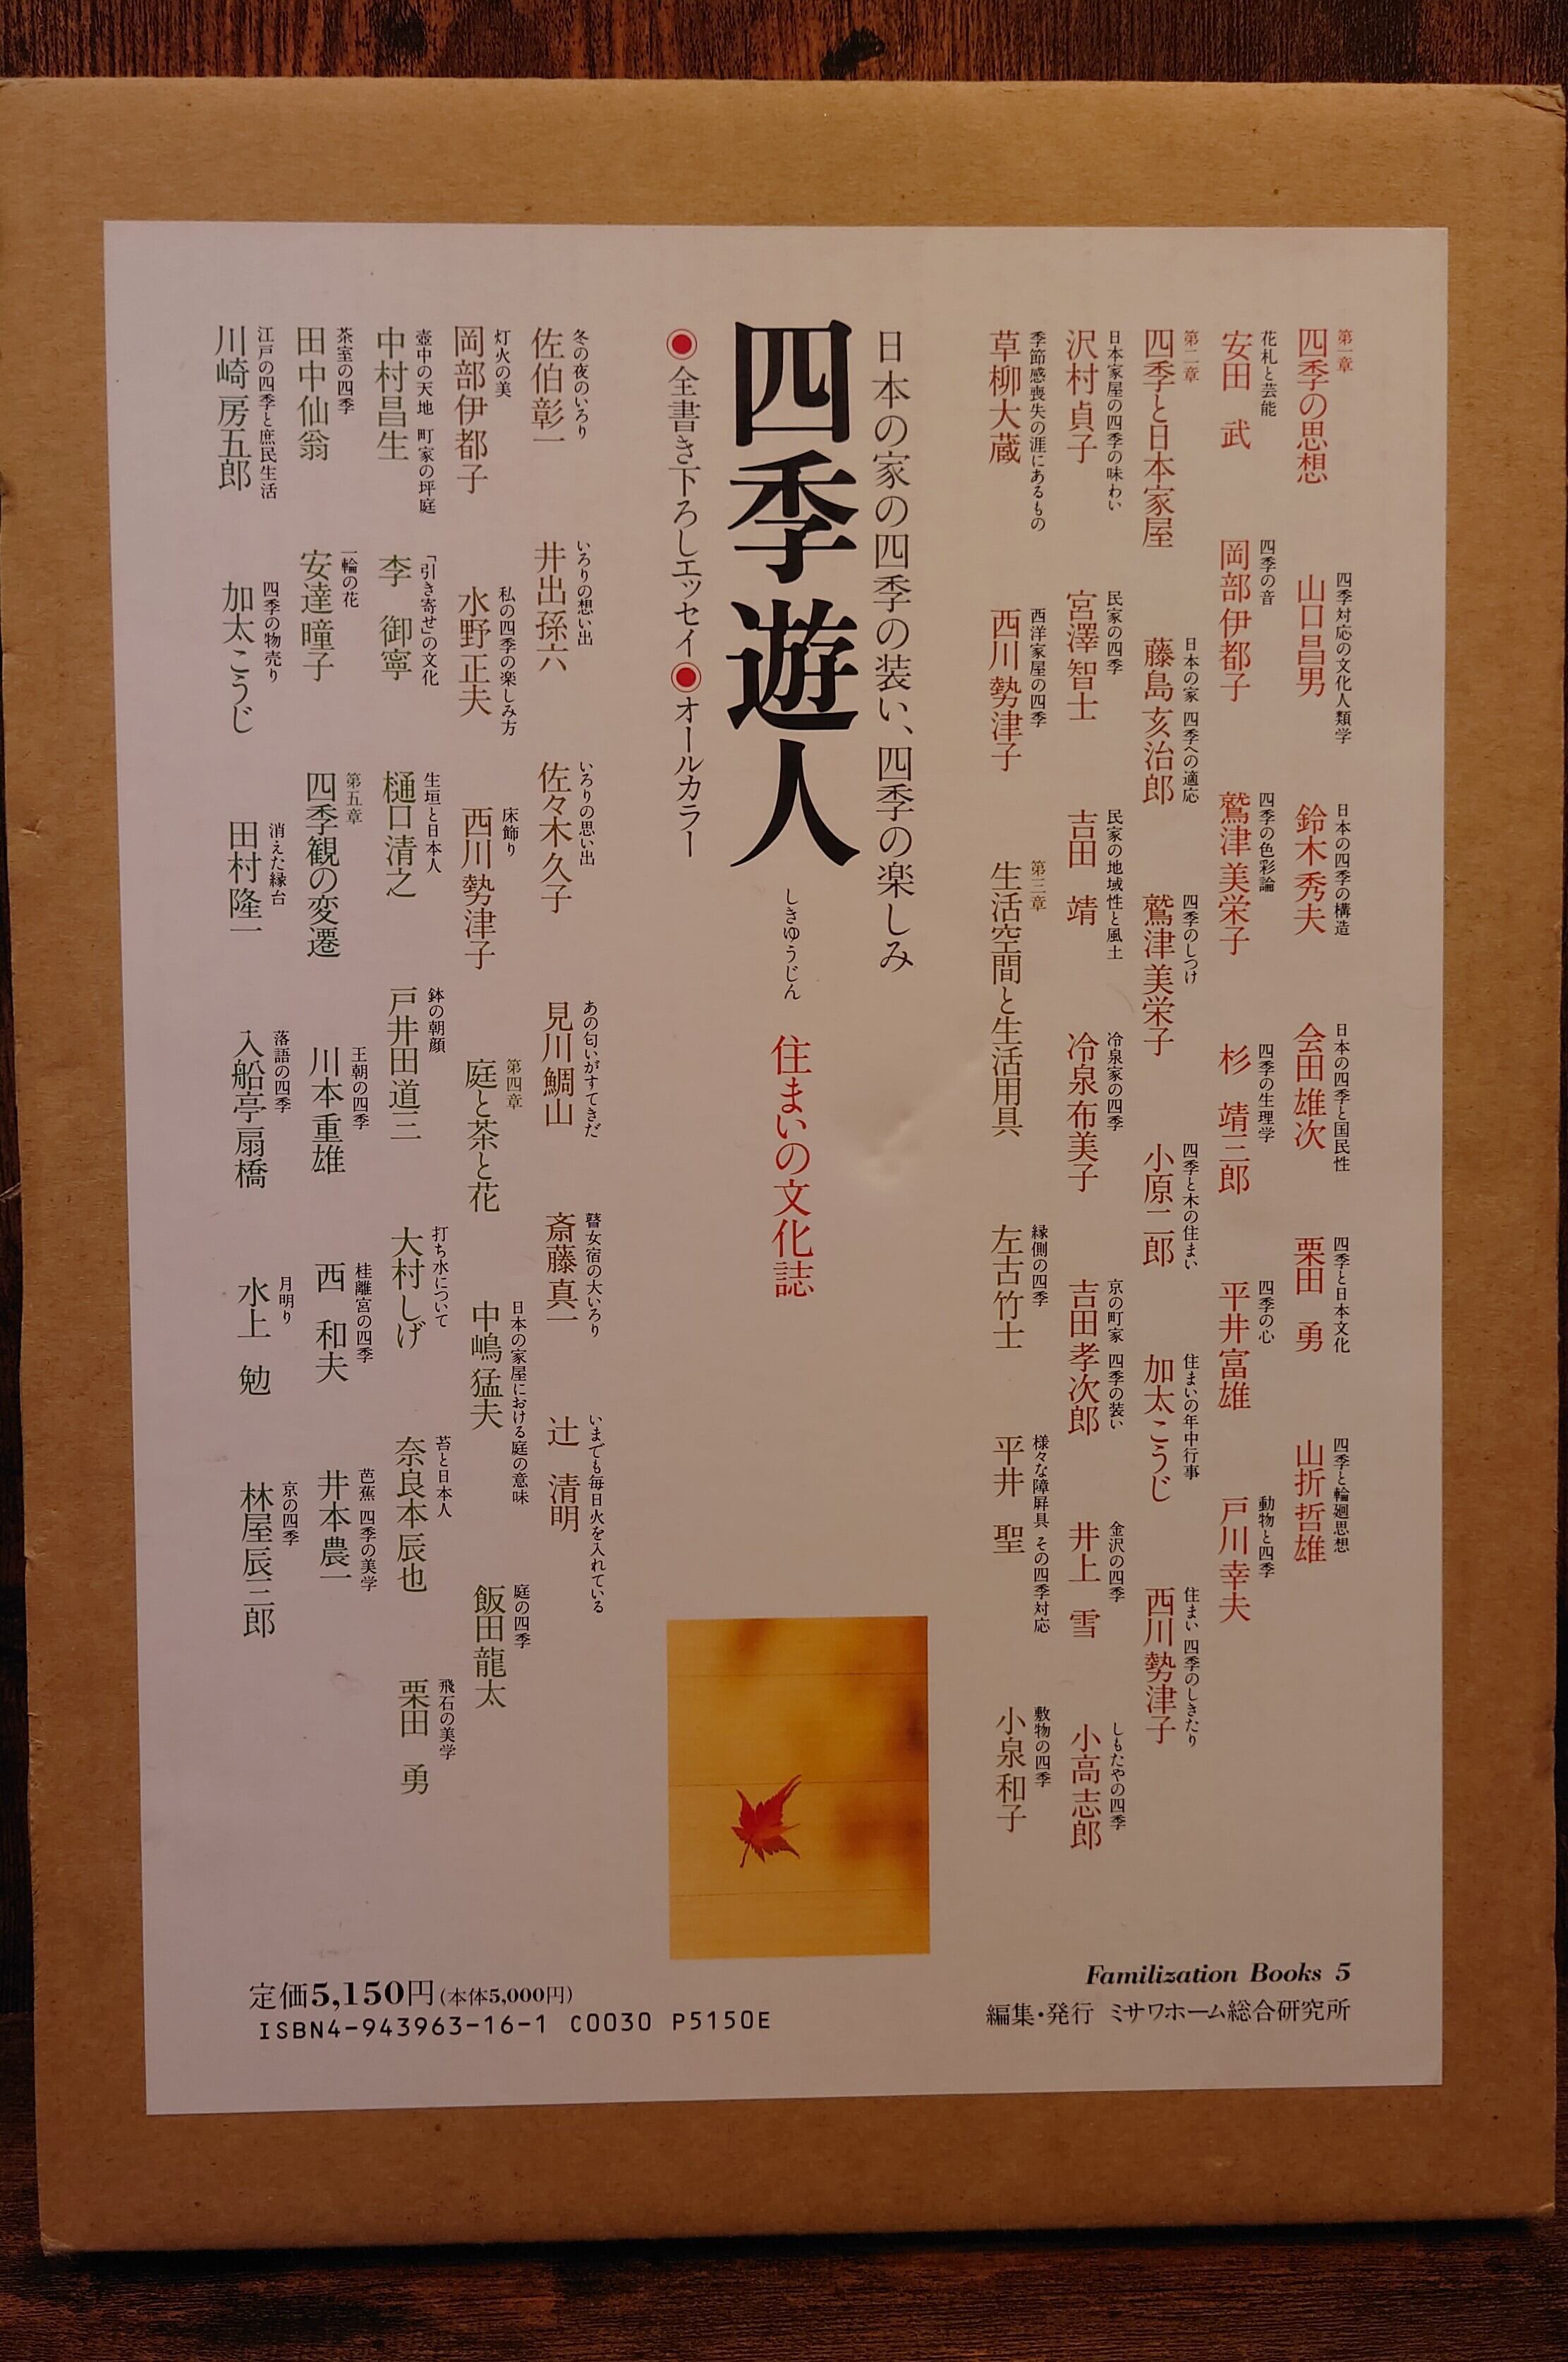 第一章
四季の思想
四季対応の文化人類学
山口昌男
日本の四季の構造
鈴木秀夫
日本の四季と国民性
会田雄次
四季と日本文化
栗田 勇
四季と輪廻思想
山折哲雄
花札と芸能
安田 武
四季の音
岡部伊都子
四季の色彩論
鷲津美栄子
四季の生理学
杉 靖三郎
四季の心
平井富雄
動物と四季
戸川幸夫
第二章
四季と日本家屋
日本の家 四季への適応
藤島亥治郎
四季のしつけ
鷲津美栄子
四季と木の住まい
小原二郎
住まいの年中行事
加太こうじ
住まい 四季のしきたり
西川勢津子
日本家屋の四季の味わい
沢村貞子
民家の四季
宮澤智士
民家の地域性と風土
吉田 靖
冷泉家の四季
冷泉布美子
京の町家 四季の装い
吉田孝次郎
金沢の四季
井上 雪
しもたやの四季
小高志郎
季節感喪失の涯にあるもの
草柳大蔵
西洋家屋の四季
西川勢津子
第三章
生活空間と生活用具
縁側の四季
左古竹士
様々な障屛具 その四季対応
平井 聖
敷物の四季
小泉和子
日本の家の四季の装い、四季の楽しみ
四季遊人
しきゆうじん
住まいの文化誌
◉全書き下ろしエッセイ◉オールカラー
冬の夜のいろり
佐伯彰一
いろりの想い出
井出孫六
いろりの思い出
佐々木久子
あの匂いがすてきだ
見川鯛山
瞽女宿の大いろり
斎藤真一
いまでも毎日火を入れている
辻 清明
灯火の美
岡部伊都子
私の四季の楽しみ方
水野正夫
床飾り
西川勢津子
第四章
庭と茶と花
日本の家屋における庭の意味
中嶋猛夫
庭の四季
飯田龍太
壺中の天地 町家の坪庭
中村昌生
「引き寄せ」の文化
李 御寧
生垣と日本人
樋口清之
鉢の朝顔
戸井田道三
打ち水について
大村しげ
苔と日本人
奈良本辰也
飛石の美学
栗田 勇
茶室の四季
田中仙翁
一輪の花
安達瞳子
第五章
四季観の変遷
王朝の四季
川本重雄
桂離宮の四季
西 和夫
芭蕉 四季の美学
井本農一
江戸の四季と庶民生活
川崎房五郎
四季の物売り
加太こうじ
消えた縁台
田村隆一
落語の四季
入船亭扇橋
月明り
水上 勉
京の四季
林屋辰三郎
Familization Books 5
編集・発行 ミサワホーム総合研究所
定価5,150円(本体5,000円)
ISBN4-943963-16-1 C0030 P5150E